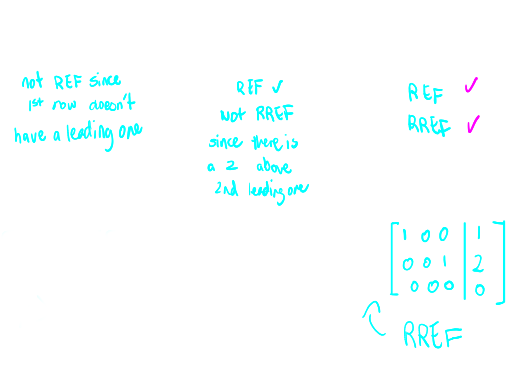 not REF since
1st row doesn't
have a leading one
REF ✓
Not RREF
since there is
a 2 above
2nd leading one
REF ✓
RREF ✓
1 0 0 | 1
0 0 1 | 2
0 0 0 | 0
RREF